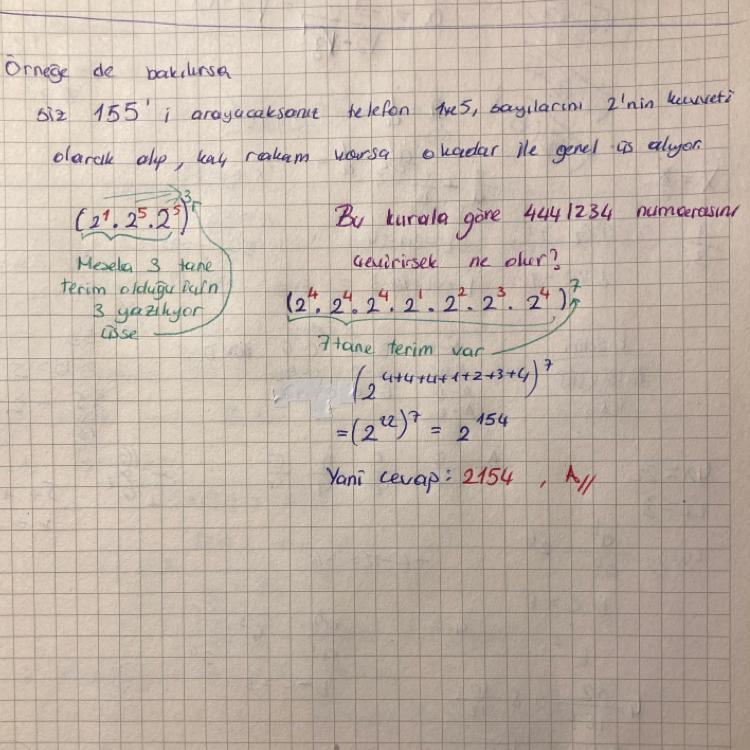 Örneğe de bakılırsa
siz 155'i arayacaksanız telefon 1x5, sayılarını 2'nin kuvveti
olarak alıp, kaç rakam varsa o kadar ile genel üs alıyor.
(2¹. 2⁵. 2⁵)³
Mesela 3 tane
terim olduğu için
3 yazılıyor
üsse
Bu kurala göre 4441234 numarasını
çevirirsek ne olur?
(2⁴. 2⁴. 2⁴. 2¹. 2². 2³. 2⁴)⁷
7 tane terim var
(2⁴⁺⁴⁺⁴⁺¹⁺²⁺³⁺⁴)⁷
=(2²²)⁷ = 2¹⁵⁴
Yani cevap: 2154, A//